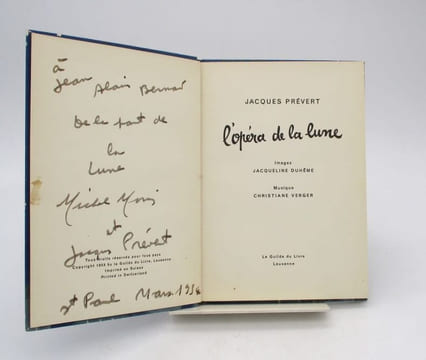 à
Jean
Alain Bernard
De la part de
la
Lune
Michel Morin
et
Jacques Prévert
Tous droits réservés pour tous pays
Copyright 1953 by la Guilde du Livre, Lausanne
Imprimé en Suisse
Printed in Switzerland
St Paul Mars
JACQUES PRÉVERT
l'opéra de la lune
Images
JACQUELINE DUHÊME
Musique
CHRISTIANE VERGER
La Guilde du Livre
Lausanne